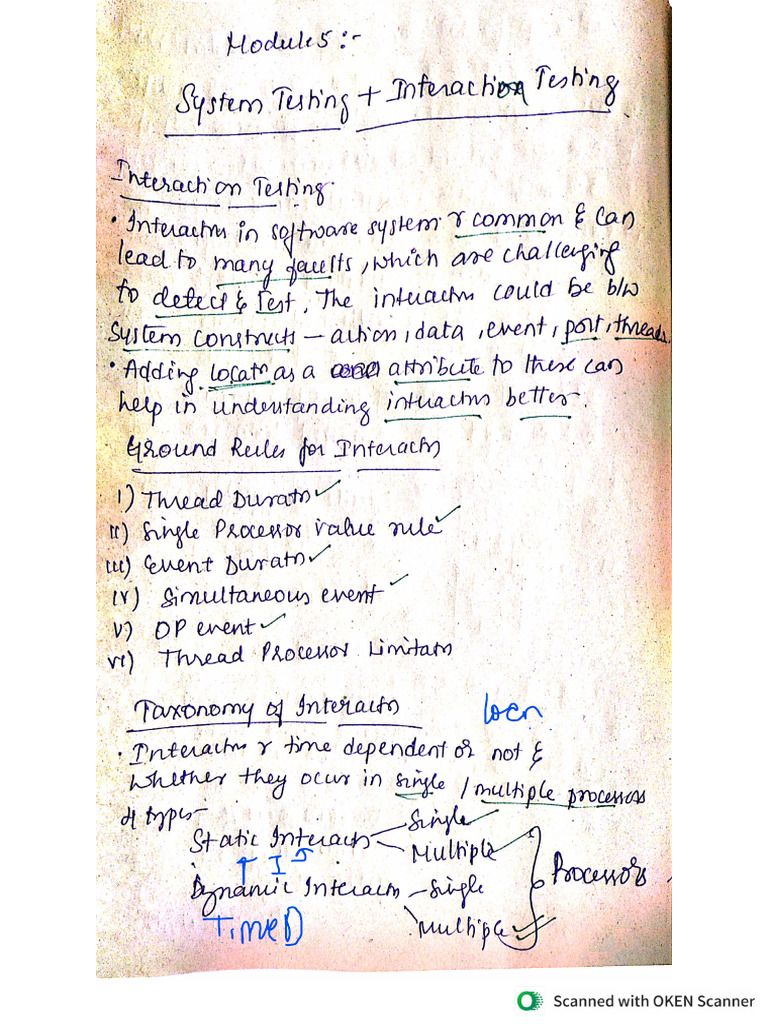 Module 5:-
System Testing + Interaction Testing
Interaction Testing.
• Interactns in software system r common & can
lead to many faults, which are challenging
to detect & Test. The interactns could be b/w
System Constructs – action, data, event, port, threads.
• Adding locatn as a attribute to these can
help in understanding interactns better.
Ground Rules for Interactns
i) Thread Duratn ✓
ii) Single Processor value rule ✓
iii) Event Duratn ✓
iv) Simultaneous event ✓
v) OP event ✓
vi) Thread Processor Limitatn
Taxonomy of Interactn
locn
• Interactns r time dependent or not &
whether they occur in single / multiple processors
4 types –
Static Interactn – Single ✓
Multiple ✓
Processors
Dynamic Interactn – Single
Multiple ✓
Time D
Scanned with OKEN Scanner